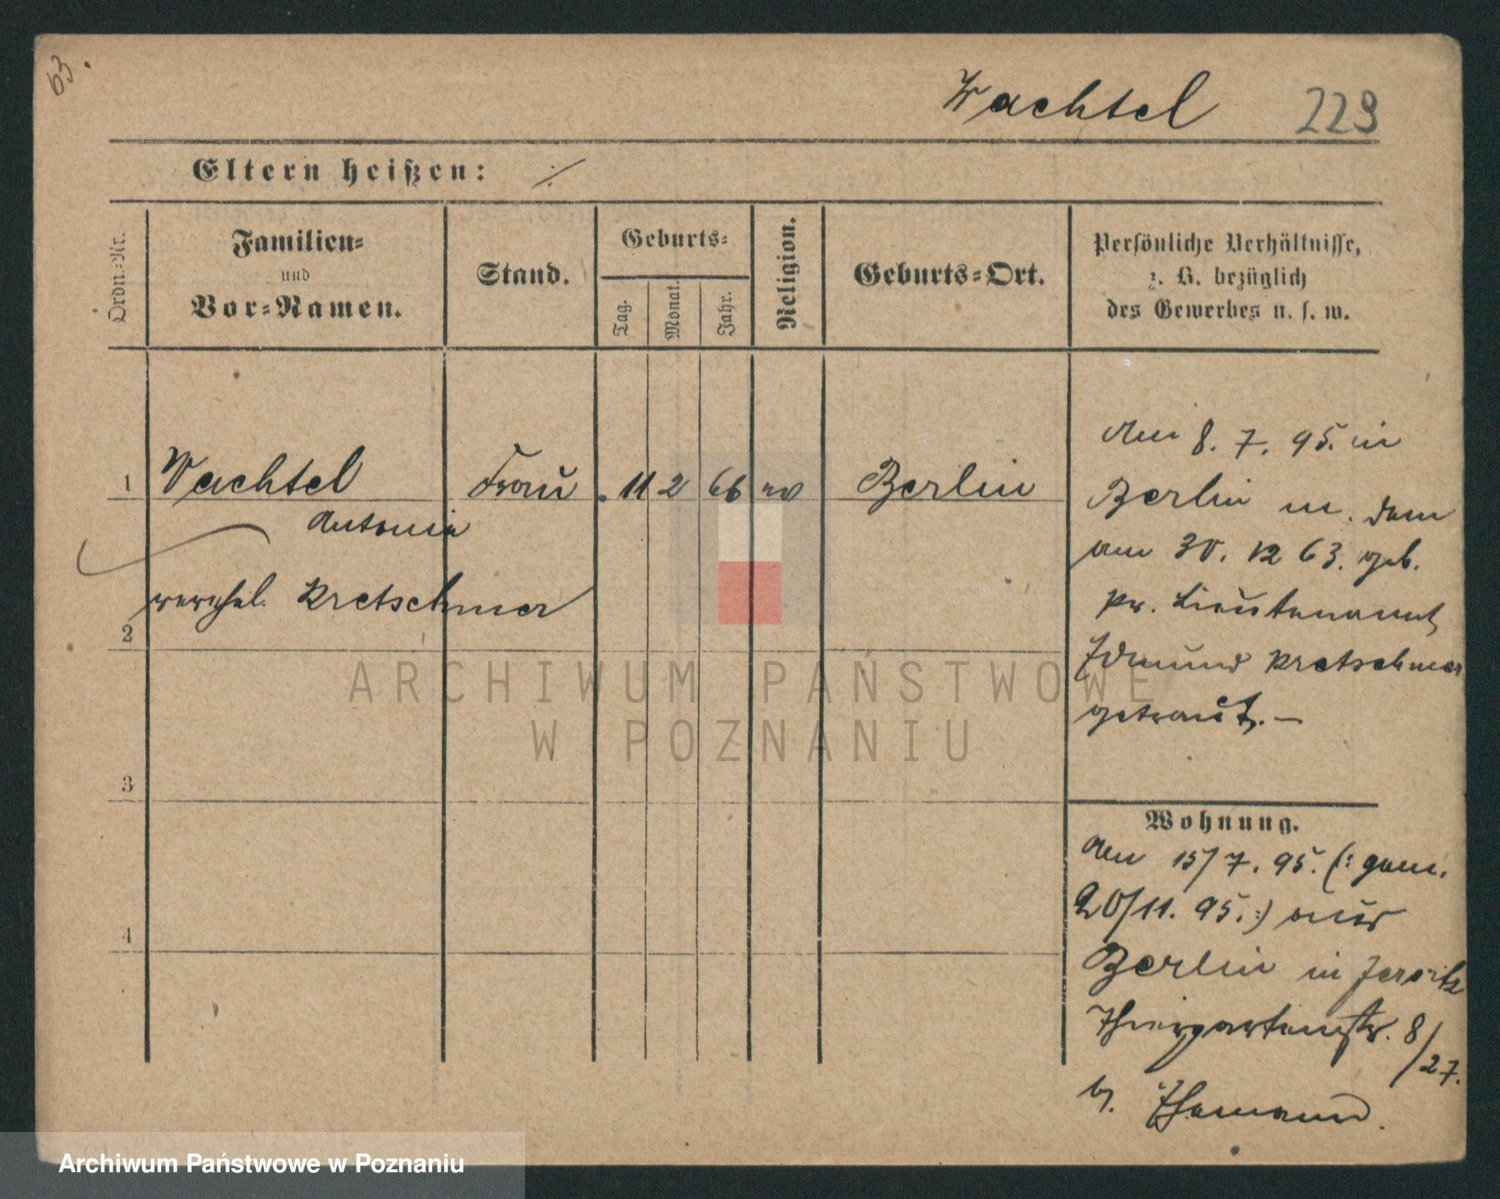 63.
Wachtel 229
Eltern heißen: ./.
Ordn.-Nr.
Familien-
und
Vor-Namen.
Stand.
Geburts-
Tag.
Monat.
Jahr.
Religion.
Geburts-Ort.
Persönliche Verhältnisse,
z. B. bezüglich
des Gewerbes u. s. w.
1 Wachtel Frau 11 2 66 ev Berlin
Antonie
verehel. Kretschmer
2
3
4
Am 8. 7. 95. in
Berlin m. dem
am 30. 12 63. geb.
Pr. Lieutenant
Edmund Kretschmer
getraut. —
Wohnung.
Am 15/7. 95. (: gem.
20/11. 95. :) aus
Berlin in Jersitz
Thiergartenstr. 8/27.
b.
ARCHIWUM PAŃSTWOWE
W POZNANIU
Archiwum Państwowe w Poznaniu